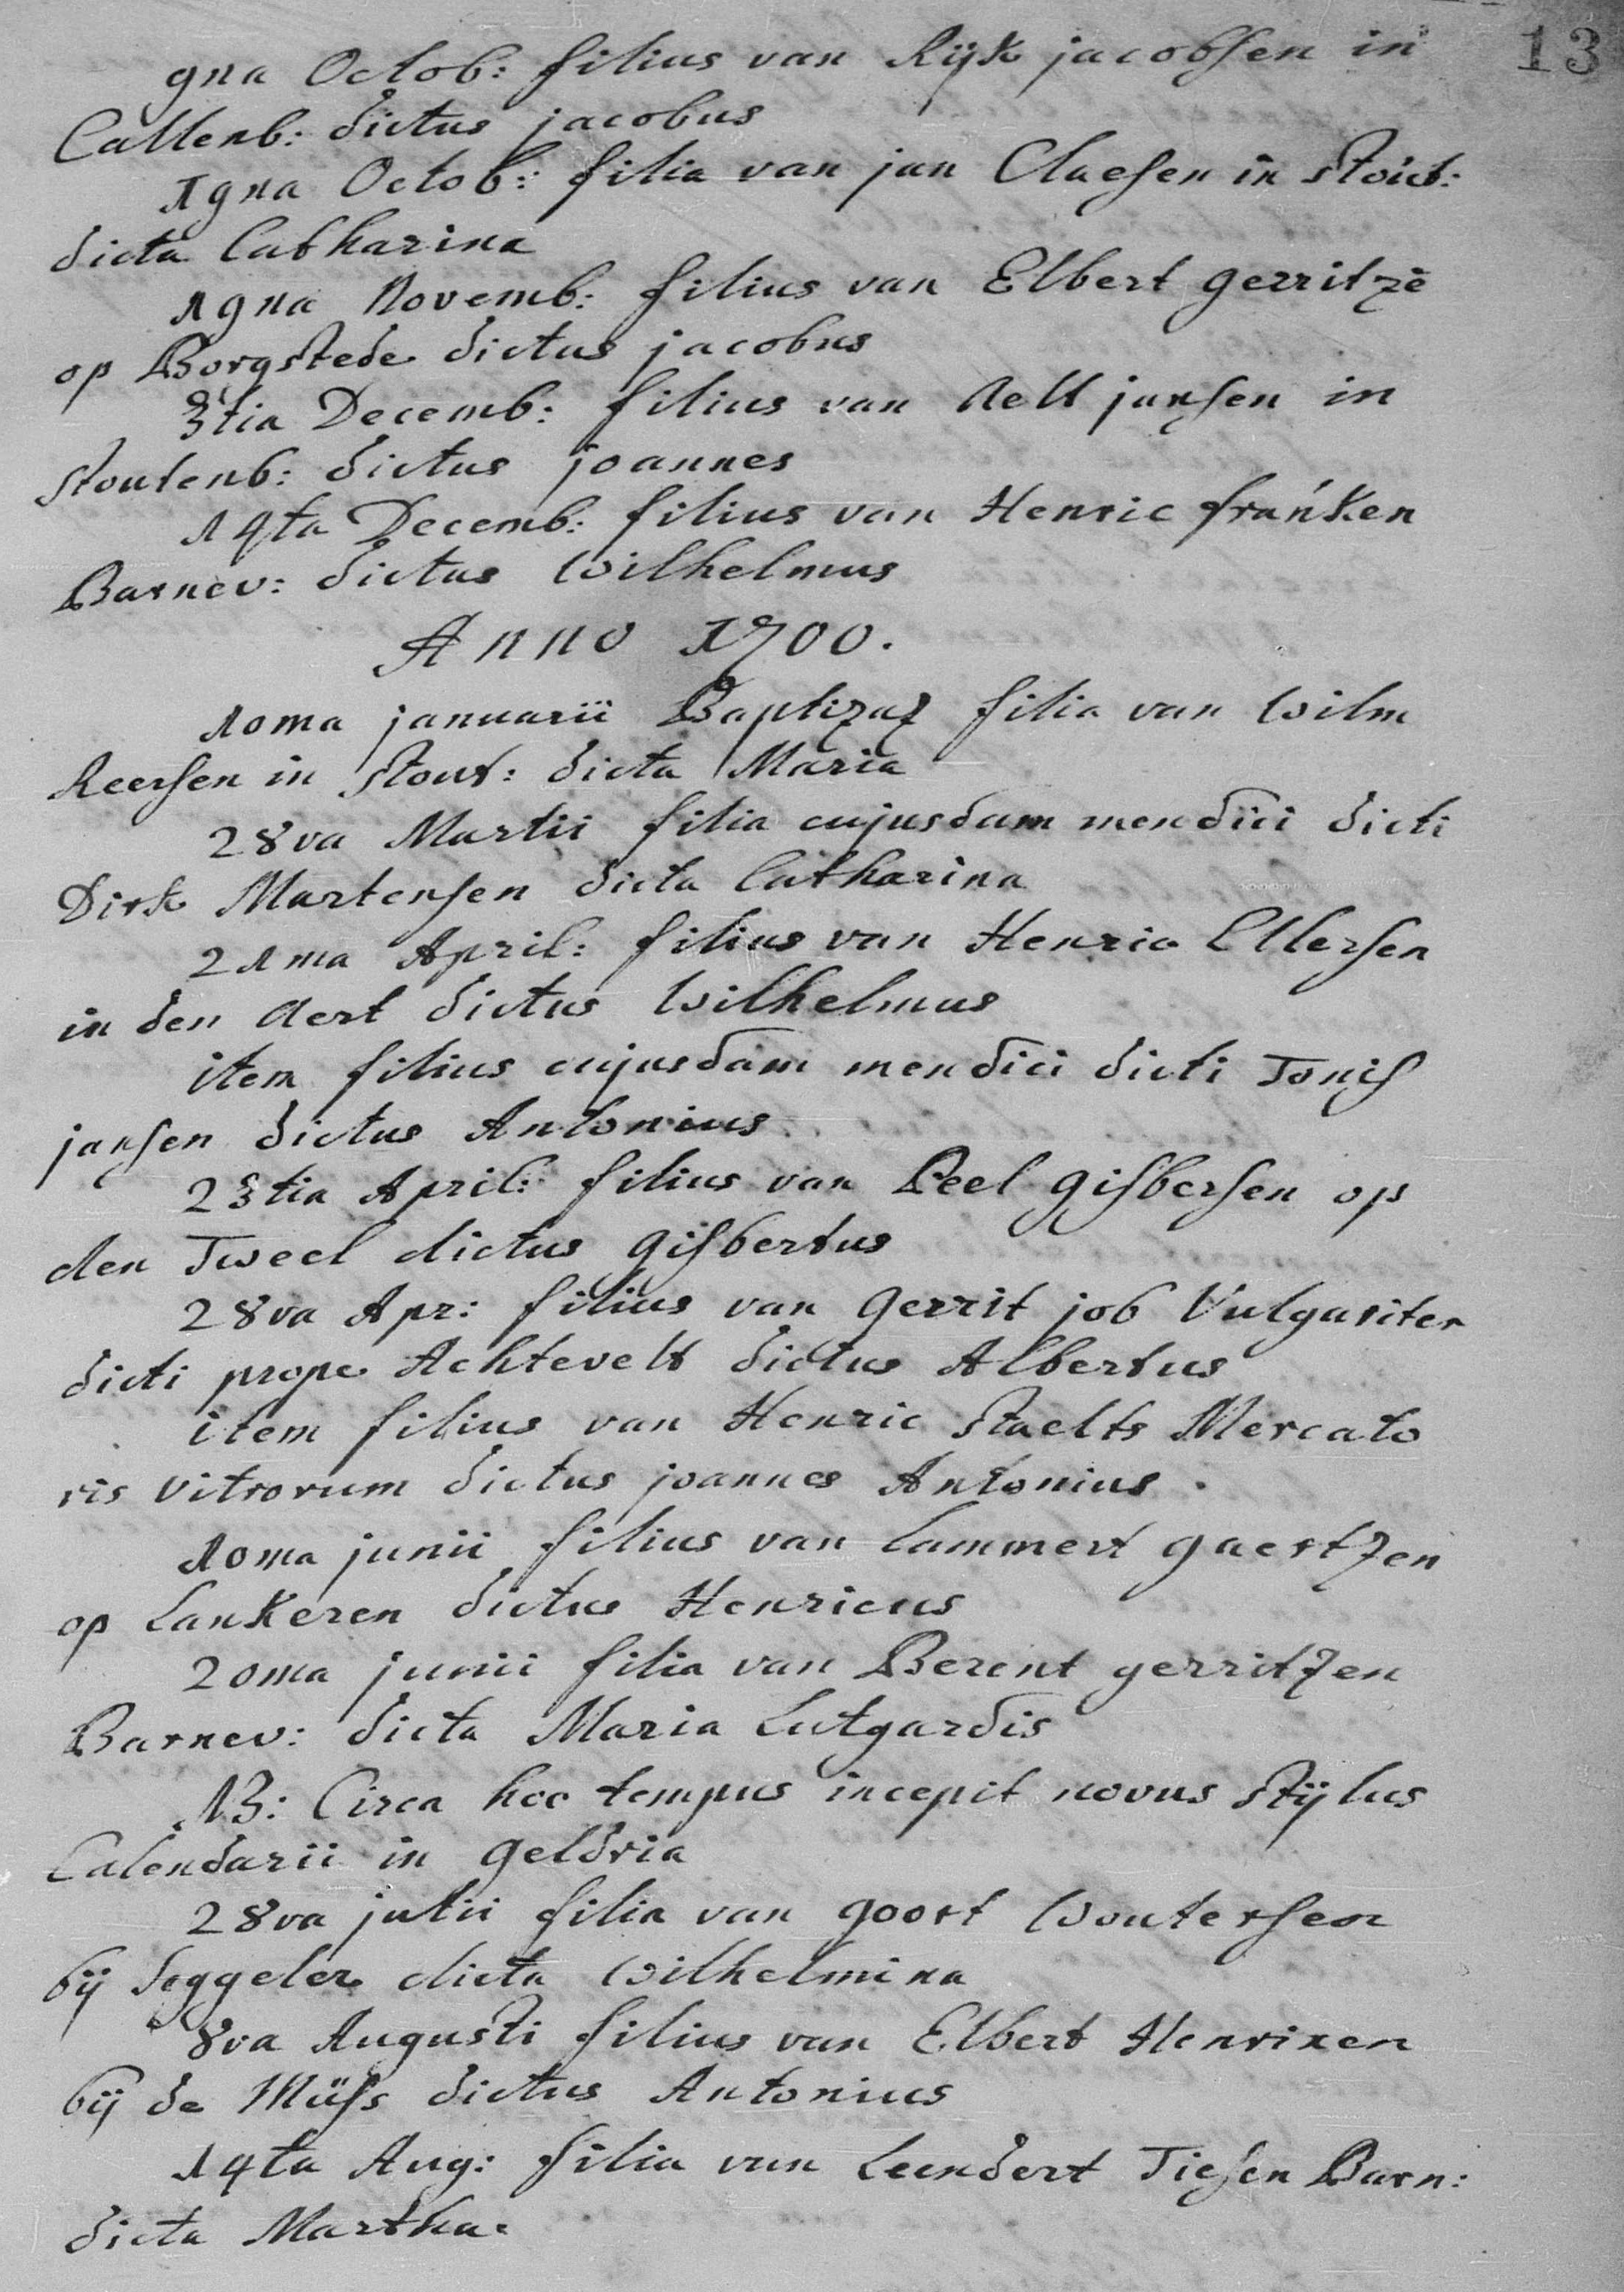 13
9na Octob: filius van Rijk jacobsen in
Callenb: dictus jacobus
19na Octob: filia van jan Claesen in stout:
dicta Catharina
19na Novemb: filius van Elbert gerritzē
op Borgstede dictus jacobus
3tia Decemb: filius van Aelt jansen in
stoutenb: dictus joannes
14ta Decemb: filius van Henric franken
Barnev: dictus Wilhelmus
Anno 1700.
10ma januarii Baptizaz filia van Wilm
Reersen in stout: dicta Maria
28va Martii filia cujusdam mendici dicti
Dirk Martensen dicta Catharina
21ma April: filius van Henric Ellersen
in den Aert dictus Wilhelmus
item filius cujusdam mendici dicti Tonis
jansen dictus Antonius
23tia April: filius van Peel gisbersen op
den Tweel dictus gisbertus
28va Apr: filius van gerrit job Vulgariter
dicti prope Achtevelt dictus Albertus
item filius van Henric Staelts Mercato
ris Vitrorum dictus joannes Antonius.
10ma junii filius van Lammert gaertzen
op Lankeren dictus Henricus
20ma junii filia van Berent gerritzen
Barnev: dicta Maria Lutgardis
NB: Circa hoc tempus incepit novus stijlus
Calendarii in geldria
28va julii filia van goort Woutersen
bij Seggeler dicta Wilhelmina
8va Augusti filius van Elbert Henrixen
bij de Müss dictus Antonius
14ta Aug: filia van Leendert Tiesen Barn:
dicta Martha.